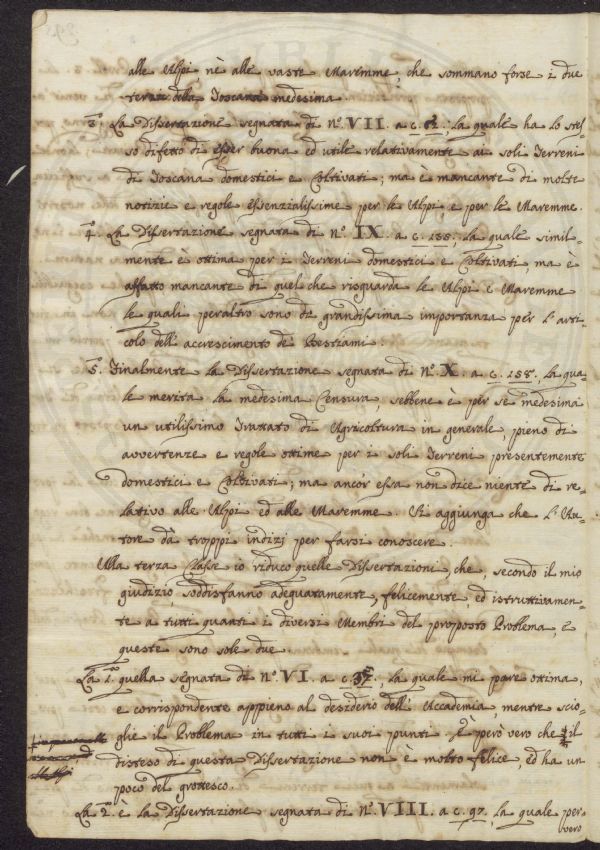 alle Alpi, nè alle vaste Maremme, che sommano forse i due
terzi della Toscana medesima.
3.ª La Dissertazione segnata di n.º VII. a c. 62., la quale ha lo stes-
so difetto di esser buona ed utile relativamente ai soli Terreni
di Toscana domestici e Coltivati; ma è mancante di molte
notizie e regole essenzialissime per le Alpi e per le Maremme.
4.ª La Dissertazione segnata di n.º IX. a c. 138., la quale simil-
mente è ottima per i Terreni domestici e Coltivati, ma è
affatto mancante di quel che risguarda le Alpi e Maremme
le quali peraltro sono di grandissima importanza per l'arti-
colo dell'accrescimento de' Bestiami.
5.ª Finalmente la Dissertazione segnata di n.º X. a c. 158., la qua-
le merita la medesima Censura, sebbene è per sè medesima
un utilissimo Trattato di Agricoltura in generale, pieno di
avvertenze e regole ottime per i soli Terreni presentemente
domestici e Coltivati; ma ancor essa non dice niente di re-
lativo alle Alpi ed alle Maremme. Si aggiunga che l'Au-
tore dà troppi indizj per farsi conoscere.
Alla terza Classe io riduco quelle Dissertazioni, che, secondo il mio
giudizio, soddisfanno adeguatamente, felicemente, ed istruttivamen-
te a tutti quanti i diversi Membri del proposto Problema, e
queste sono sole due.
La 1.ª quella segnata di n.º VI. a c. la quale mi pare ottima,
e corrispondente appieno al desiderio dell'Accademia, mentre scio-
glie il Problema in tutti i suoi punti. È però vero che il
disteso di questa Dissertazione non è molto felice, ed ha un
poco del grottesco.
La 2.ª è la Dissertazione segnata di n.º VIII. a c. 97., la quale per
vero